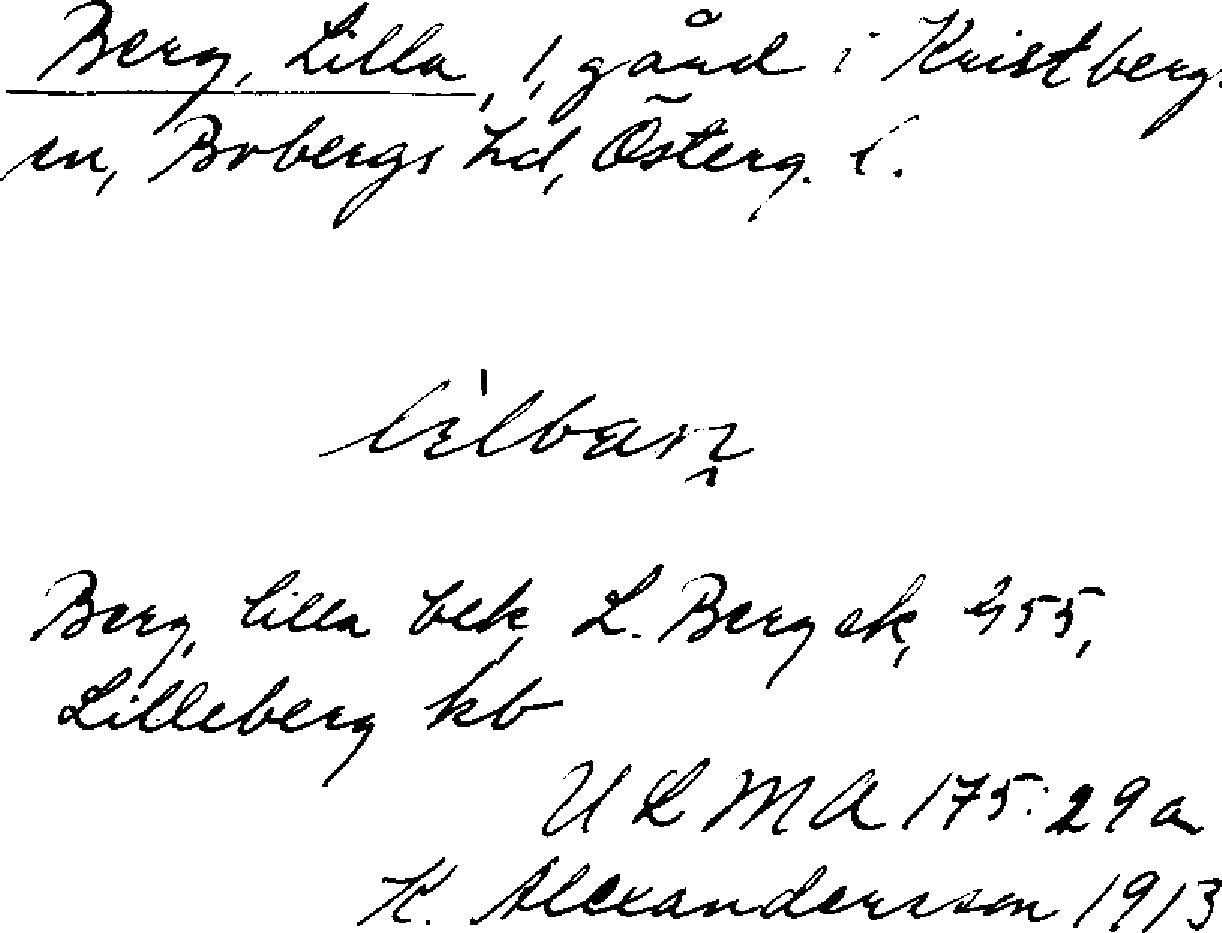 Berg, Lilla, 1, gård i Kristbergs
sn, Bobergs hd, Österg. l.
Berg, lilla blk, L. Berg ek, 455,
Lilleberg kb
ULMA 175:29a
K. Alexandersson 1913